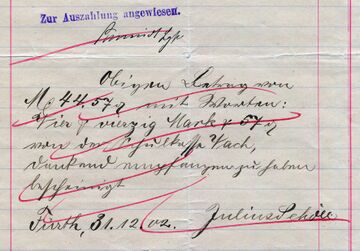 Zur Auszahlung angewiesen.
Obigen Betrag von
M 44,57 mit Worten:
Vier & vierzig Mark & 57
von der Schulkasse Vach,
dankend empfangen zu haben
bescheinigt
Fürth, 31.12.02. Julius